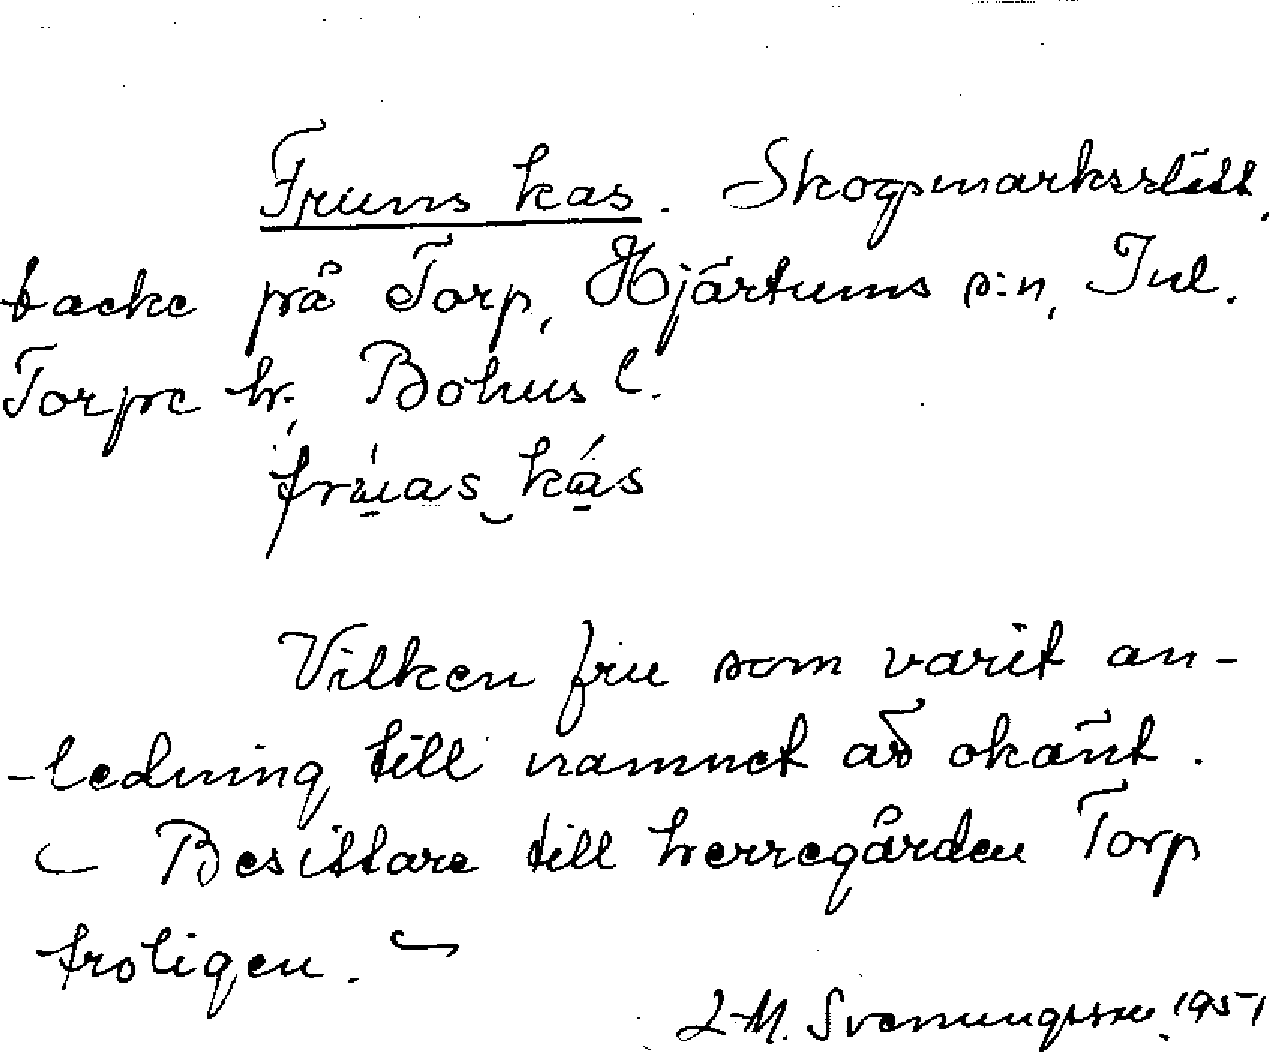 Fruns kas. Skogsmarksslätt,
backe på Torp, Hjärtums s:n, Inl.
Torpe hr, Bohus l.
frúas kás
Vilken fru som varit an-
-ledning till namnet är okänt.
Besittare till herregården Torp
troligen.
L-M. Svenungsson 1951